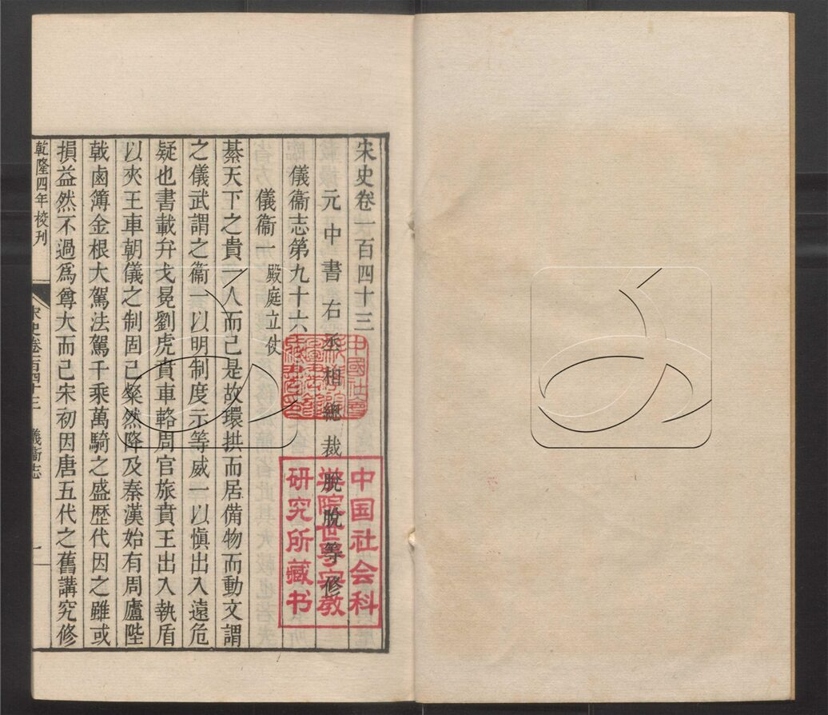 宋史卷一百四十三
元中書右丞相總裁脫脫等修
儀衞志第九十六
儀衞一 殿庭立仗
綦天下之貴一人而已是故環拱而居備物而動文謂
之儀武謂之衞一以明制度示等威一以慎出入遠危
疑也書載弁戈冕劉虎賁車輅周官旅賁王出入執盾
以夾王車朝儀之制固已粲然降及秦漢始有周廬陛
戟鹵簿金根大駕法駕千乘萬騎之盛歷代因之雖或
損益然不過爲尊大而已宋初因唐五代之舊講究修
乾隆四年校刊
宋史卷一百四十三 儀衞志 一
中国社会科
学院世界宗教
研究所藏书